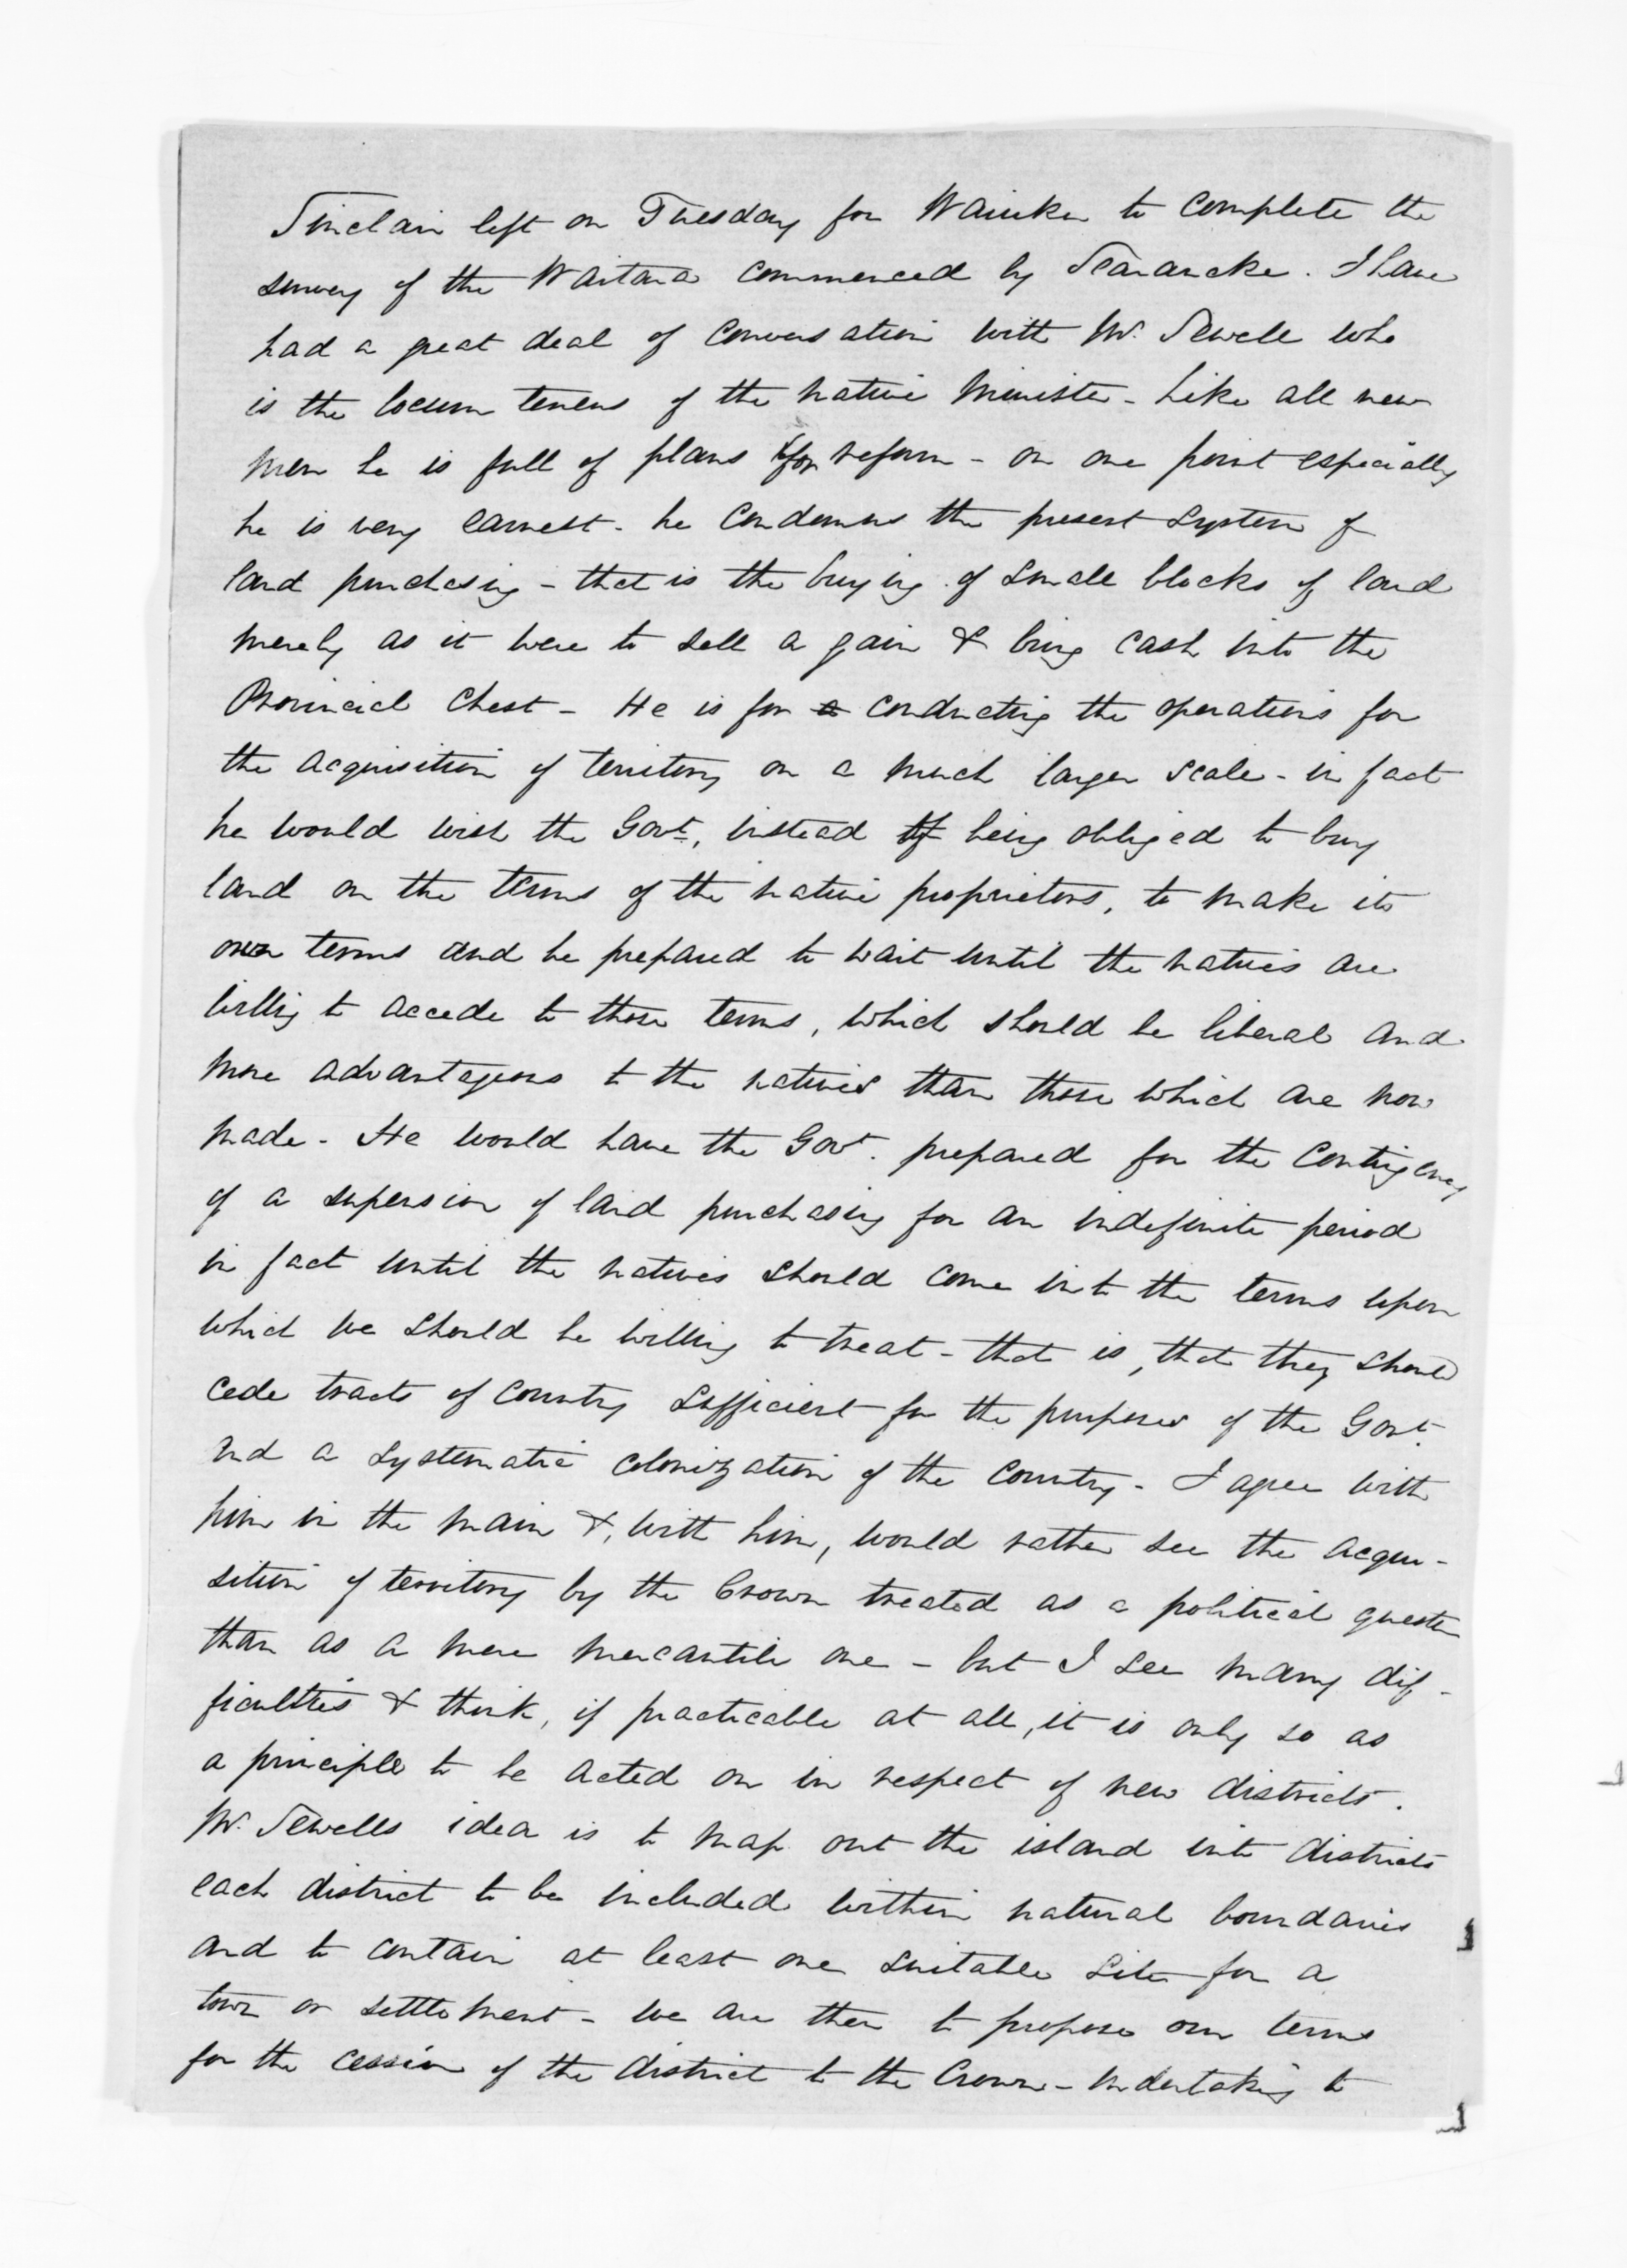 Sinclair left on Tuesday for Waiuku to complete the
survey of the Waitara commenced by Searancke. I have
had a great deal of conversation with Mr. Sewell who
is the locum tenens of the native Minister - Like all new
men he is full of plans for reform - on one point especially
he is very earnest - he condemns the present system of
land purchasing - that is the buying of small blocks of land
merely as it were to sell again & bring cash into the
Provincial Chest - He is for conducting the operations for
the acquisition of territory on a much larger scale - in fact
he would wish the Govt., instead of being obliged to buy
land on the terms of the native proprietors, to make its
own terms and be prepared to wait until the natives are
willing to accede to those terms, which should be liberal and
more advantageous to the natives than those which are now
made - He would have the Govt. prepared for the contingency
of a supension of land purchasing for an indefinite period
in fact until the natives should come into the terms upon
which we should be willing to treat - that is, that they should
cede tracts of country sufficient for the purposes of the Govt.
and a systematic colonization of the country - I agree with
him in the main &, with him, would rather see the acqui-
sition of territory by the Crown treated as a political question
than as a mere mercantile one - but I see many dif-
ficulties & think, if practicable at all, it is only so as
a principle to be acted on in respect of new districts.
Mr. Sewells idea is to map out the island into districts
each district to be included within natural boundaries
and to contain at least one suitable site for a
town or settlement - we are then to propose our terms
for the cession of the district to the Crown - undertaking to